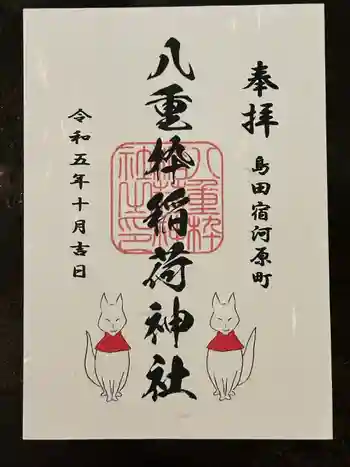 奉拝
島田宿河原町
八重枠稲荷神社
八重枠稲荷神社之印
令和五年十月吉日